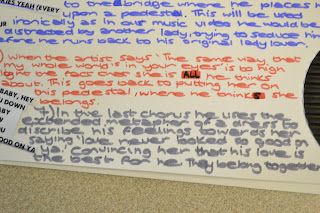 KIES YEAH (EVERY
to the bridge where he places h
upon a pedestal. This will be used
JR
ironically as in our music video he would be
distracted by another lady, trying to seduce him
as he runs back to his original lady lover.
3) When the artist says 'The same way that
my whole world's in your eyes' is to high
light the fact that she is ALL he thinks
about. This goes back to putting her on
this pedestal, where he thinks she
belongs.
BABY, HEY
U DOWN
BABY
GOOD ON YA
4) In the last chorus he uses the
extended metaphor of a dress to
discribe his feelings towards her
saying 'love never looked so good on
ya'. Convincing her that his love is
the best for her. They belong together